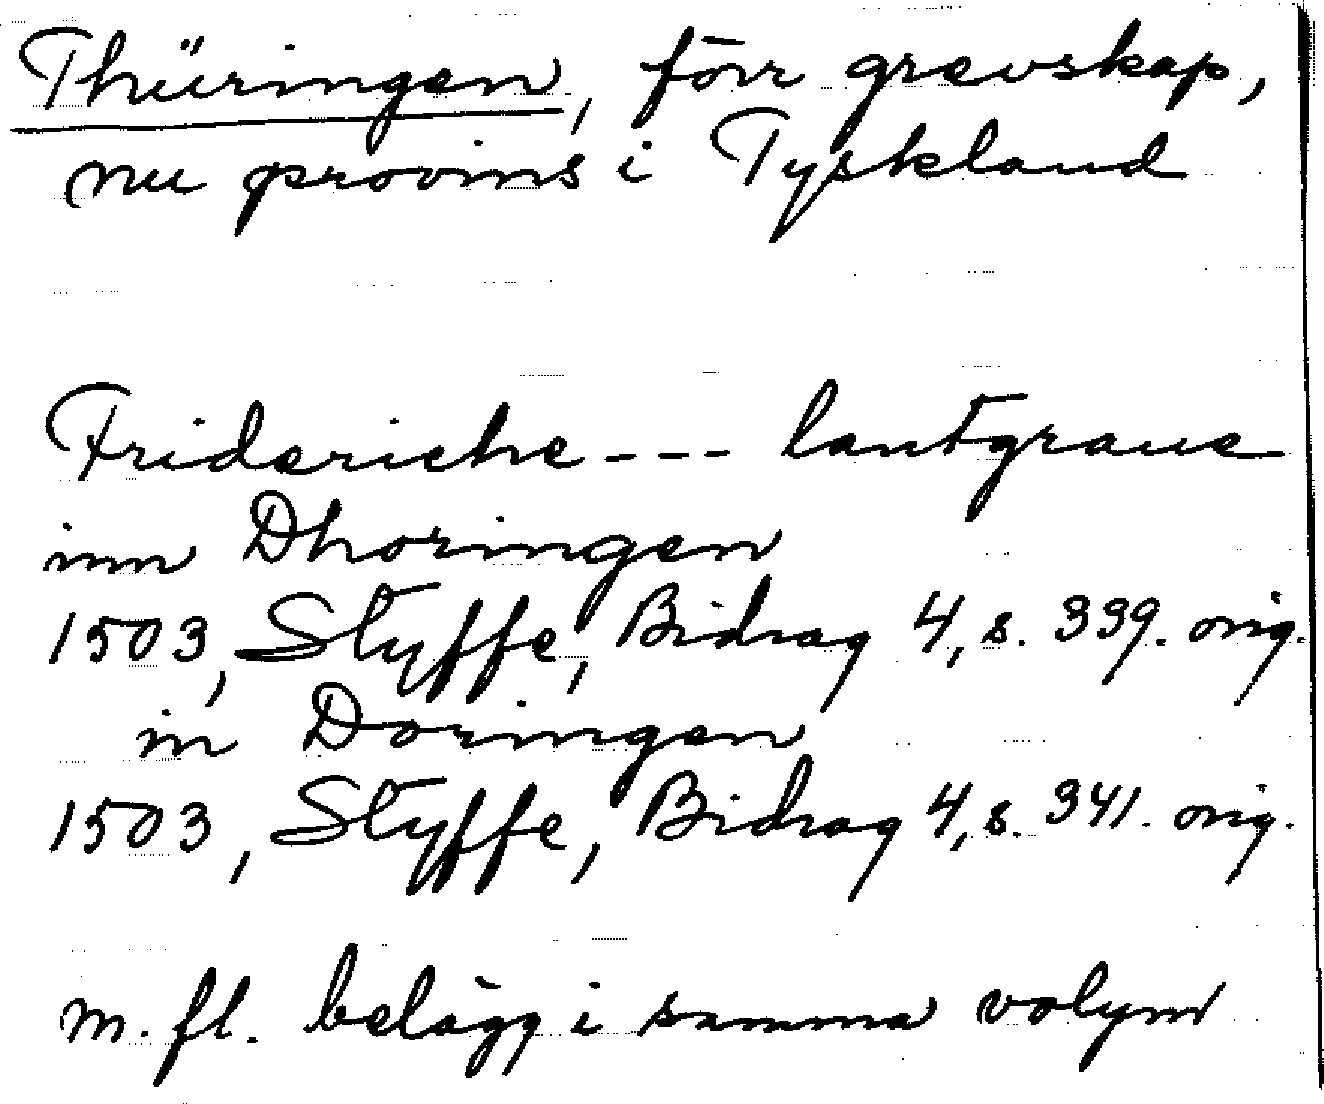 Thüringen, förr grevskap,
nu provins i Tyskland
Frideriche --- lantgraue
inn Dhoringen
1503, Styffe, Bidrag 4, s. 339. orig.
in Doringen
1503, Styffe, Bidrag 4, s. 341. orig.
m. fl. belägg i samma volym